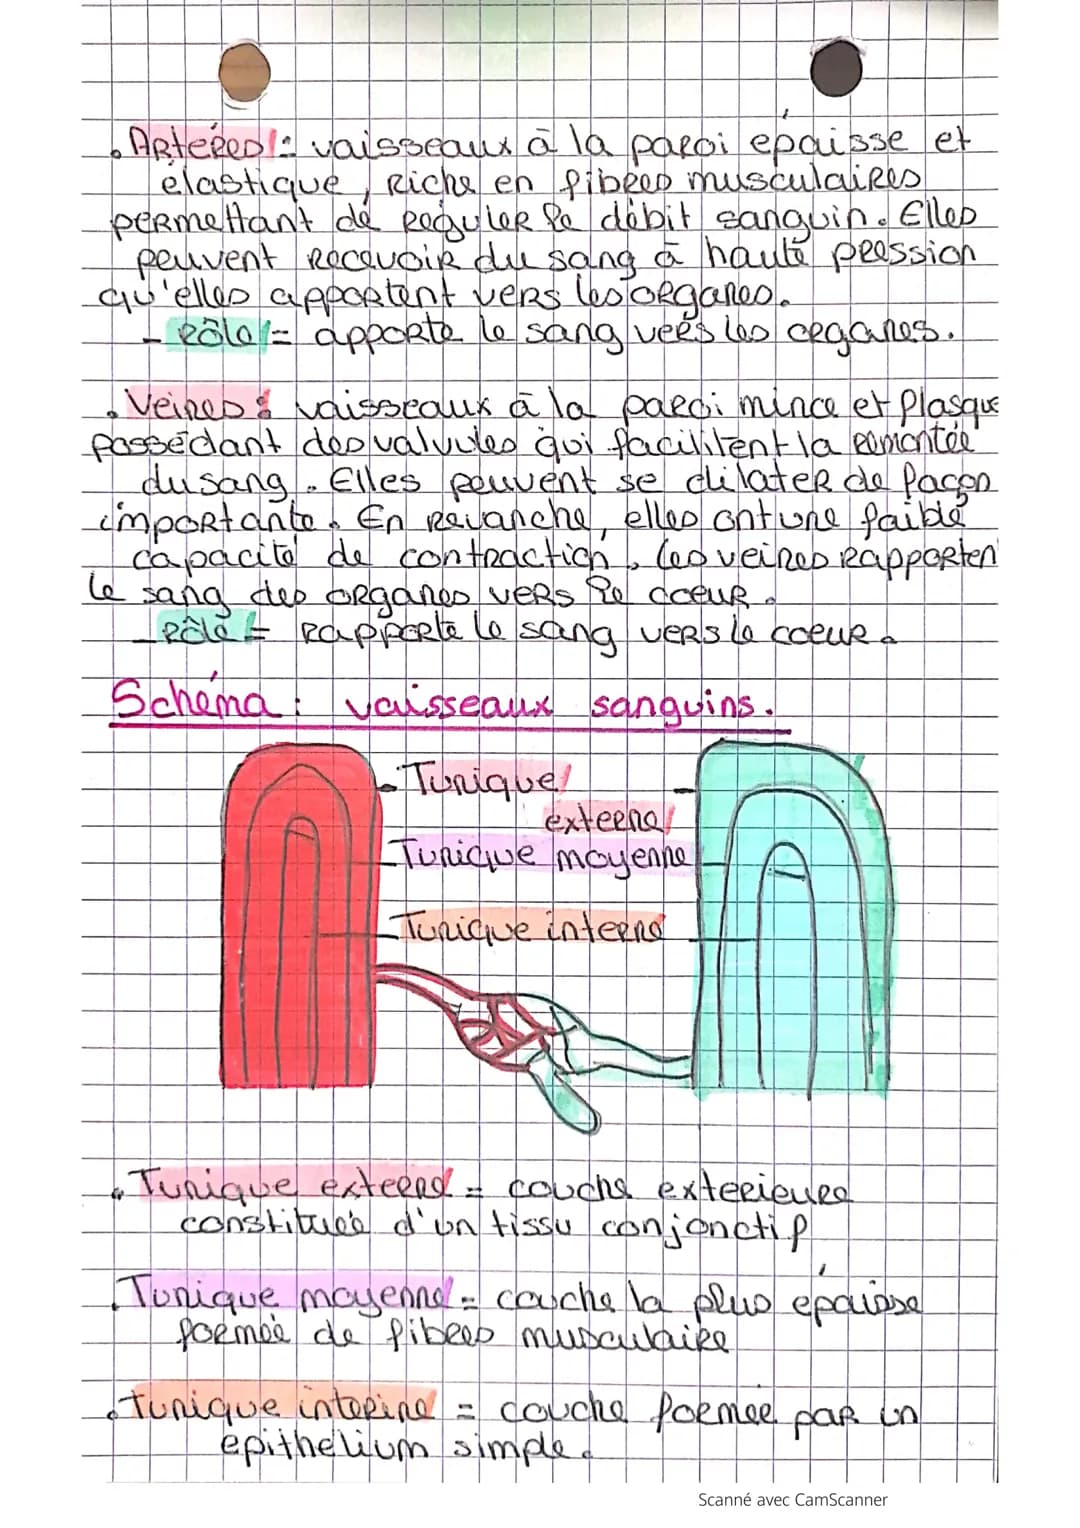 . Artères : vaisseaux à la paroi épaisse et
élastique, Riche en fibres musculaires
permettant de réguler le débit sanguin. Elles
peuvent recevoir du sang à haute pression
qu'elles apportent vers les organes.
- Rôle = apporte le sang vers les organes.
. Veines : vaisseaux à la paroi mince et flasque
possédant des valvules qui facilitent la remontée
du sang. Elles peuvent se dilater de façon
importante. En revanche, elles ont une faible
capacité de contraction, les veines rapporten
le sang des organes vers le coeur.
- Rôle = rapporte le sang vers le coeur.
Schéma : vaisseaux sanguins.
Tunique
externe
Tunique moyenne
Tunique interne
. Tunique externe = couche exterieure
constituée d'un tissu conjonctif
. Tunique moyenne = couche la plus épaisse
formée de fibres musculaire
. Tunique interine = couche formée par un
epithelium simple.
Scanné avec CamScanner